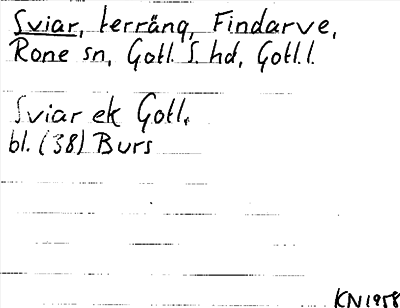 Sviar, terräng, Findarve,
Rone sn, Gotl. S. hd, Gotl.l.
Sviar ek Gotl.
bl. (38) Burs
KN 1958